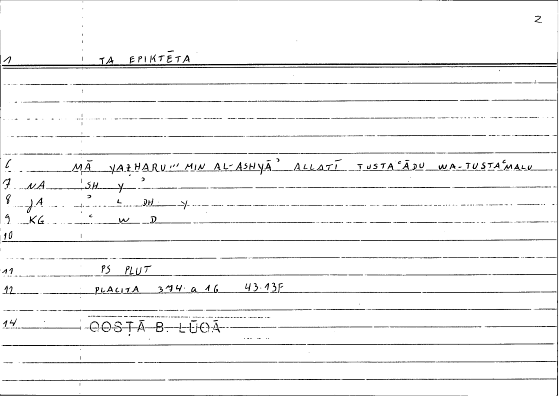 2
1 TA EPIKTĒTA
6 MĀ YAẒHARU... MIN AL-ASHYĀʾ ALLATĪ TUSTAʿĀDU WA-TUSTAʿMALU
7 NA SH Y ʾ
8 JA ʾ L DH Y
9 KG ʿ W D
10
11 PS PLUT
12 PLACITA 374 a 16 43.13F
14 QOSṬĀ B. LŪQĀ